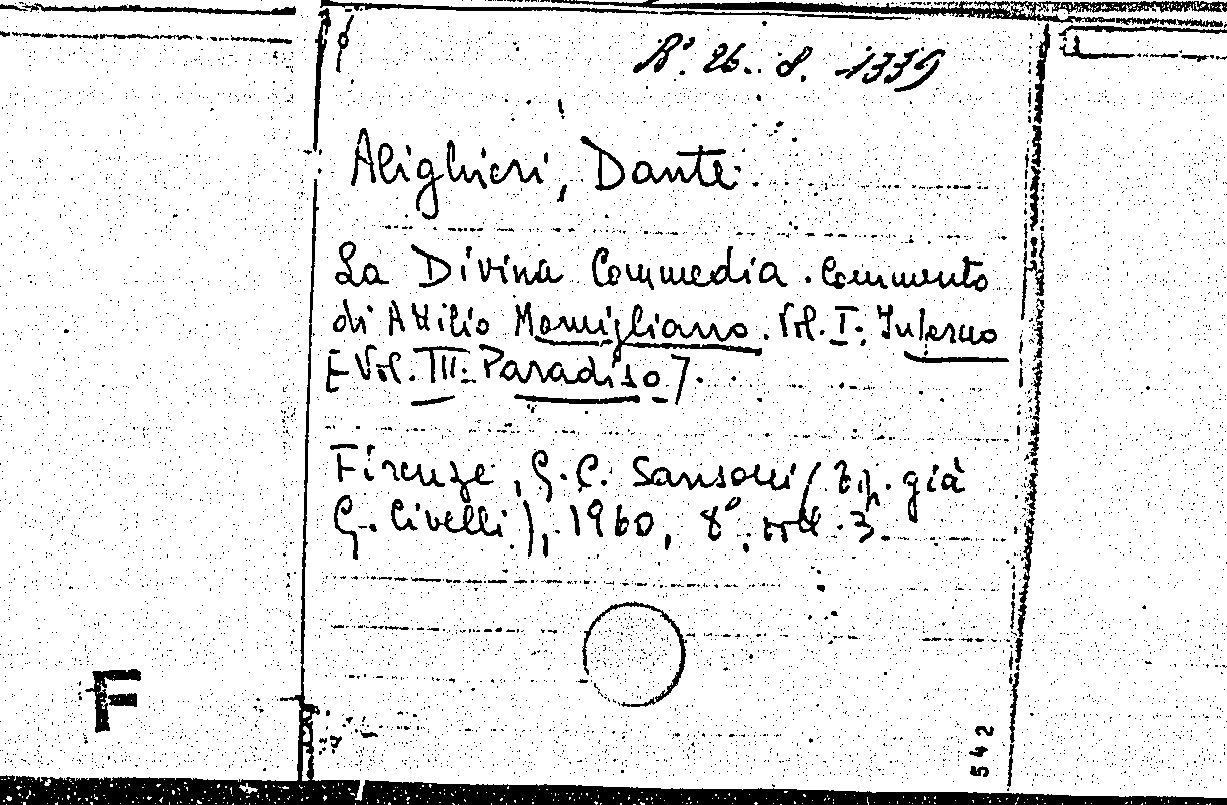 B. 26. 8. -1339
Alighieri, Dante.
La Divina Commedia. Commento
di Attilio Momigliano. Vol. I: Inferno
[-Vol. III: Paradiso].
Firenze, G. C. Sansoni (tip. già
G. Civelli), 1960, 8°, voll. 3.
F
542